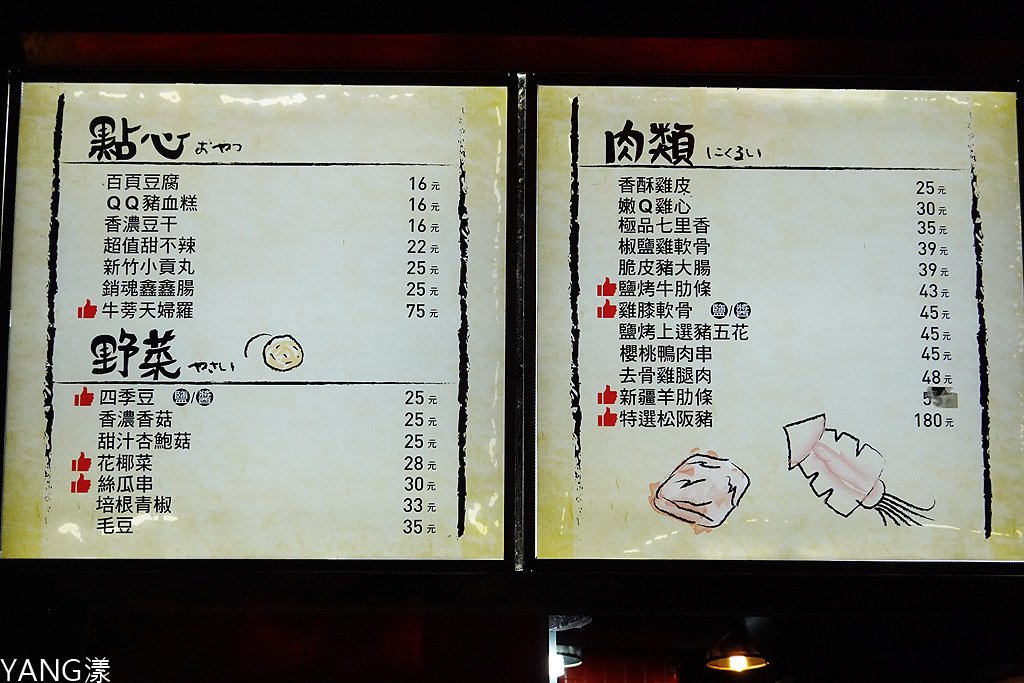 點心 おやつ
百頁豆腐 16元
QQ豬血糕 16元
香濃豆干 16元
超值甜不辣 22元
新竹小貢丸 25元
銷魂鑫鑫腸 25元
牛蒡天婦羅 75元
野菜 やさい
四季豆 鹽/醬 25元
香濃香菇 25元
甜汁杏鮑菇 25元
花椰菜 28元
絲瓜串 30元
培根青椒 33元
毛豆 35元
肉類 にくるい
香酥雞皮 25元
嫩Q雞心 30元
極品七里香 35元
椒鹽雞軟骨 39元
脆皮豬大腸 39元
鹽烤牛肋條 43元
雞膝軟骨 鹽/醬 45元
鹽烤上選豬五花 45元
櫻桃鴨肉串 45元
去骨雞腿肉 48元
新疆羊肋條
特選松阪豬 180元
YANG漾